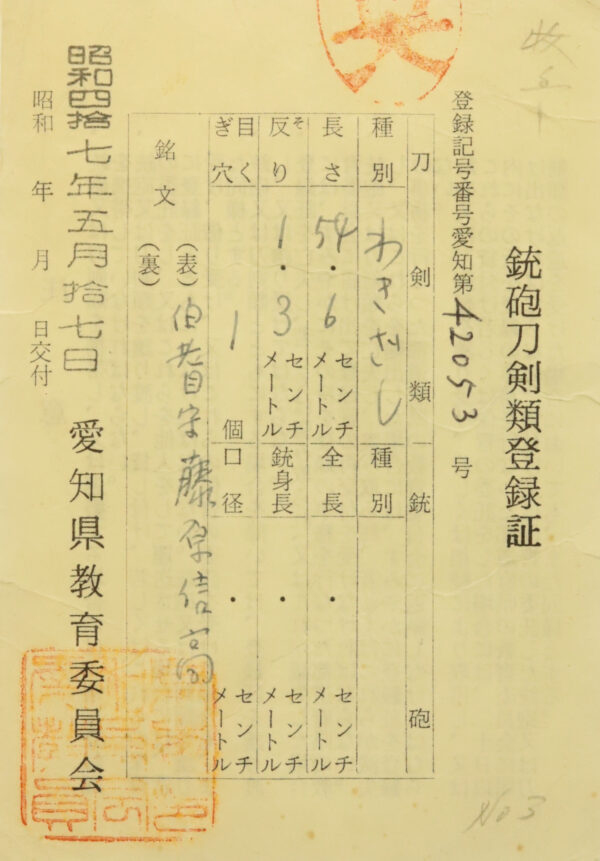 銃砲刀剣類登録証
登録記号番号愛知第42053号
刀剣類 銃砲
種別 わきざし 種別
長さ 54・6 センチメートル 全長 ・ センチメートル
反り そ 1・3 センチメートル 銃身長 ・ センチメートル
目くぎ穴 1 個 口径 ・ センチメートル
銘文 (表) 伯耆守藤原信高
(裏)
昭和四拾七年五月拾七日
昭和 年 月 日交付
愛知県教育委員会
No 3